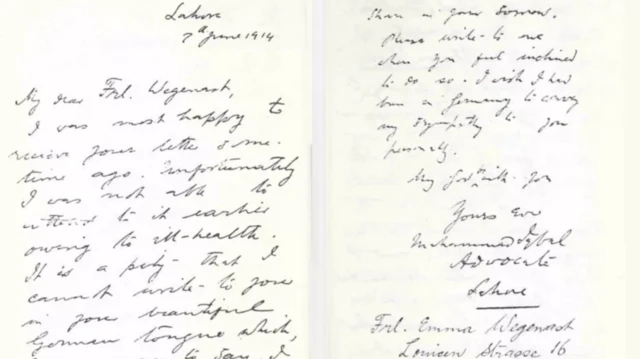 Lahore
7th June 1914
My dear Frl. Wegenast,
I was most happy to
receive your letter some-
time ago. Unfortunately
I was not able to
attend to it earlier
owing to ill-health.
It is a pity that I
cannot write to you
in your beautiful
German tongue which,
to say, I
share in your sorrow.
Please write to me
when you feel inclined
to do so. I wish I had
been in Germany to convey
my sympathy to you
personally.
My God be with you
Yours Ever
Muhammad Iqbal
Advocate
Lahore
Frl. Emma Wegenast
Strasse 16